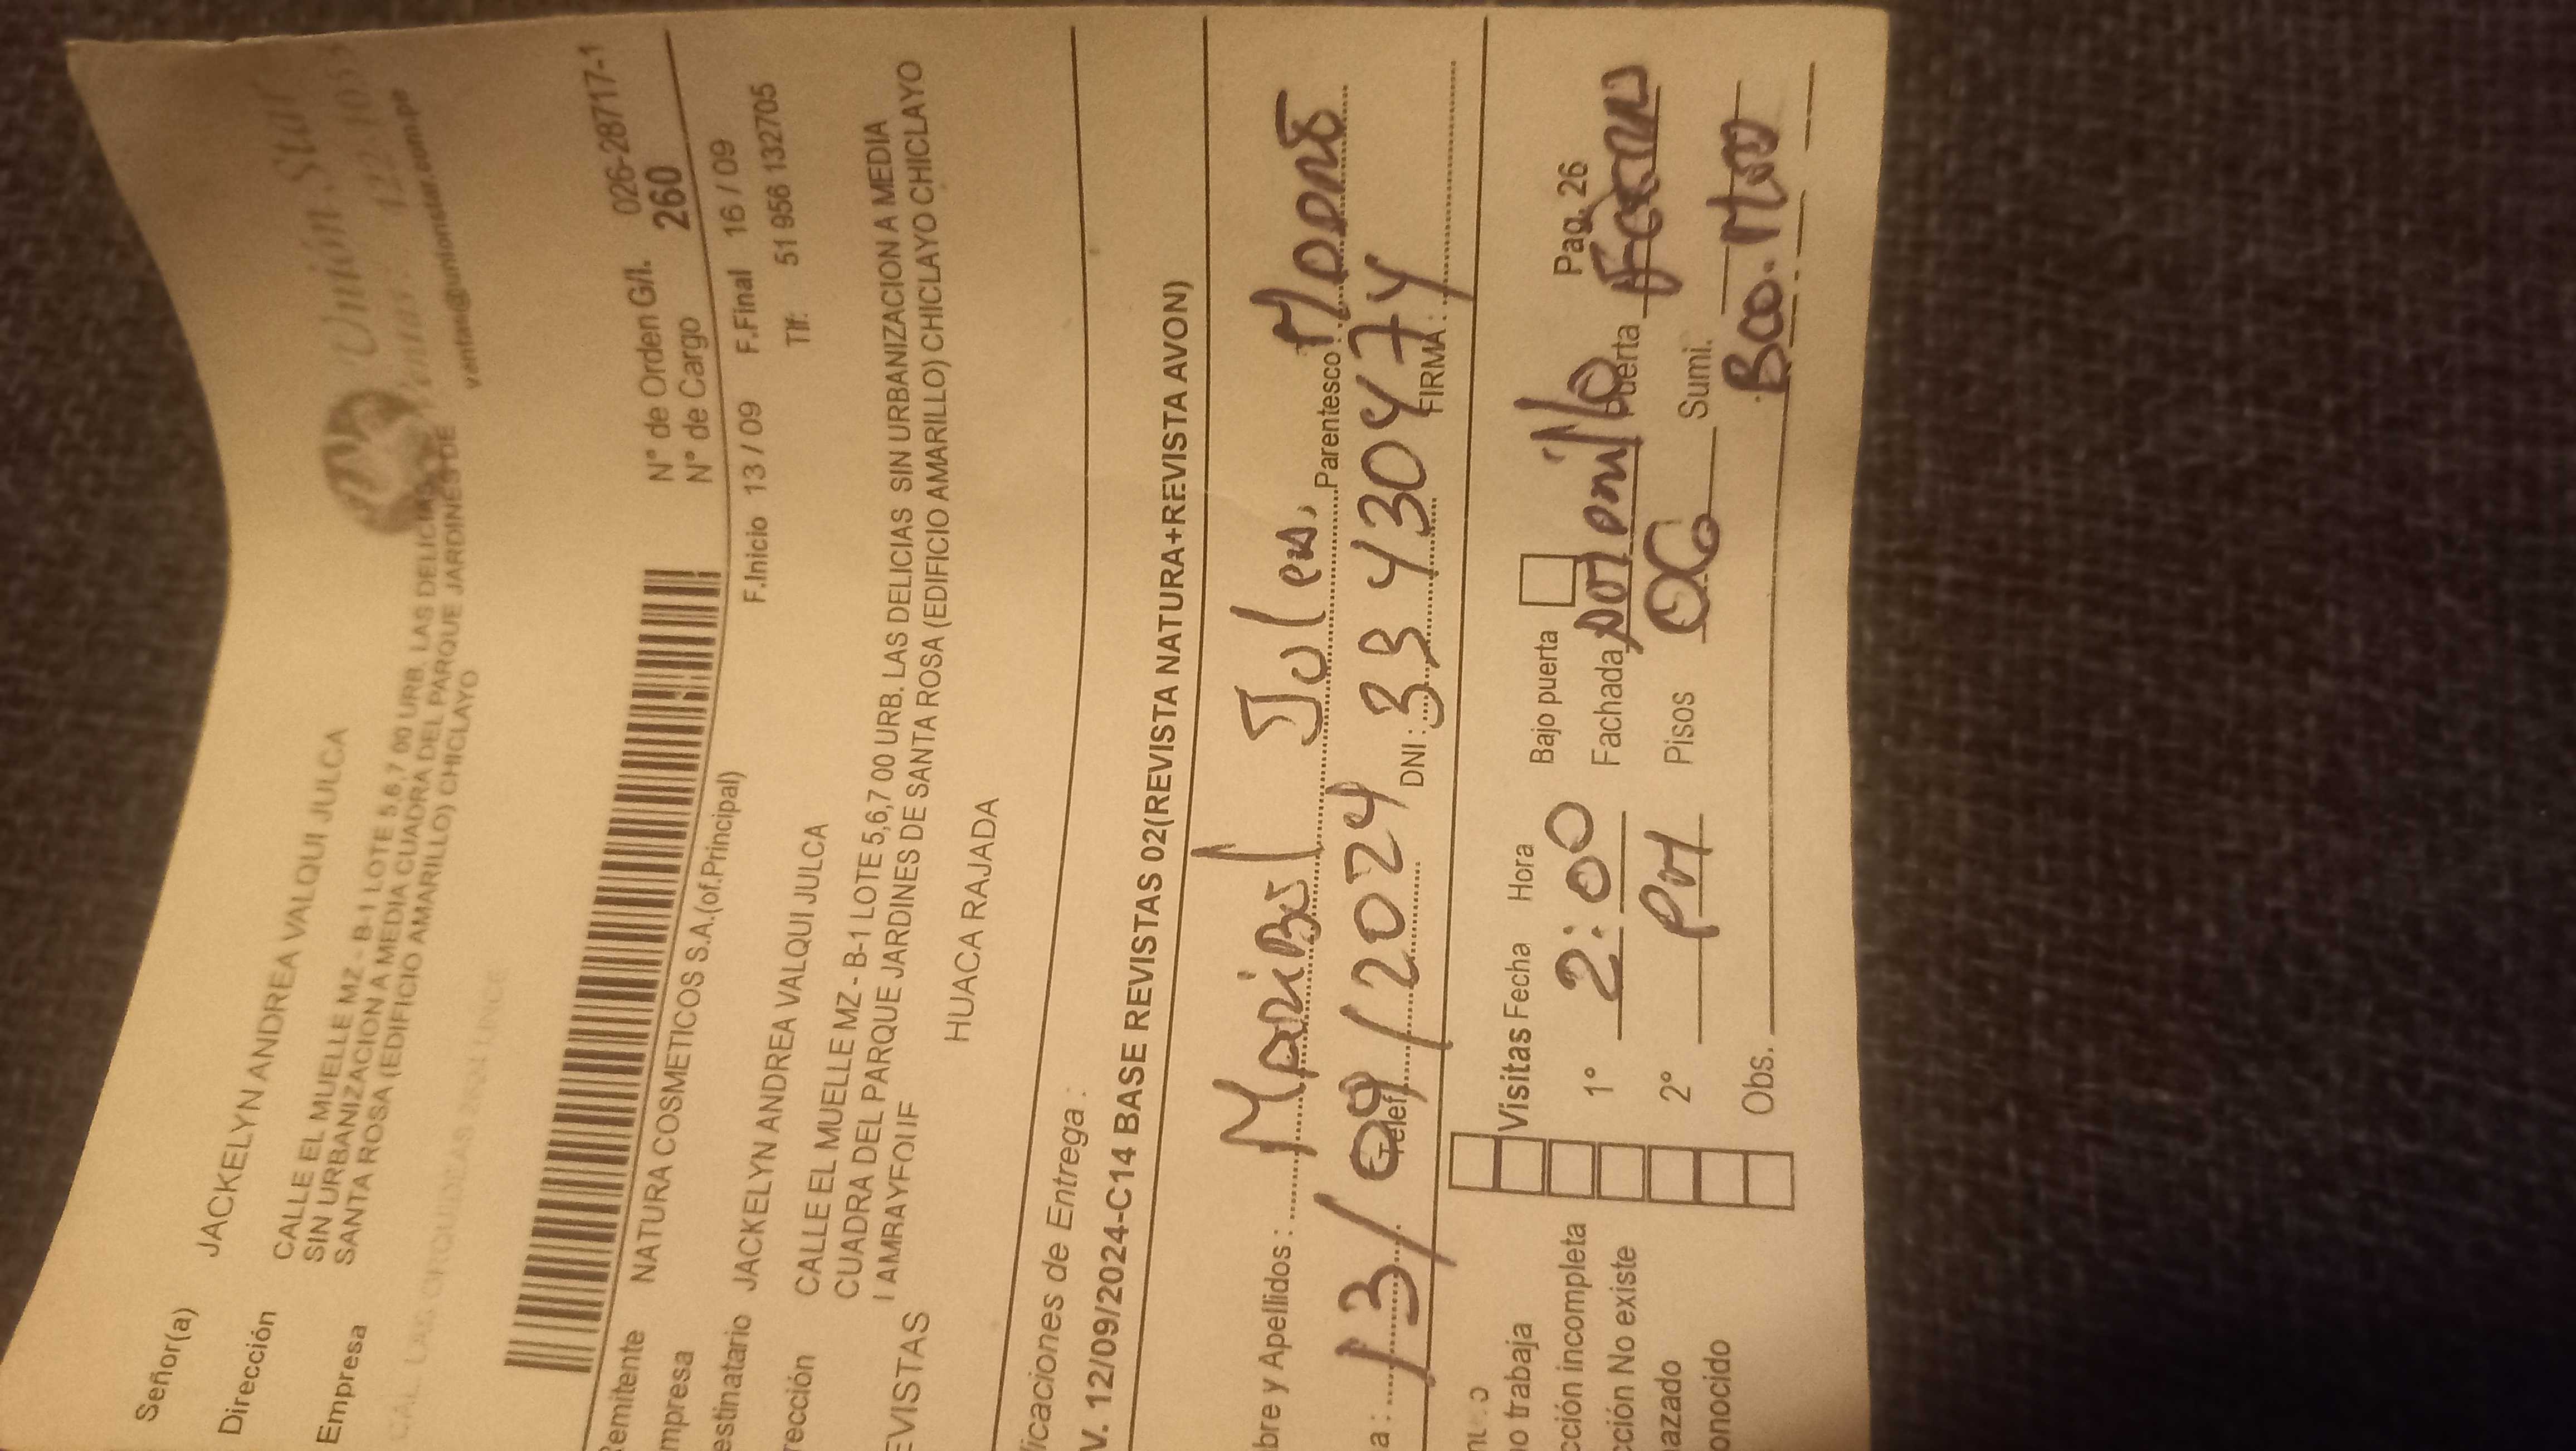 Señor(a) JACKELYN ANDREA VALQUI JULCA
Unión Star
Dirección CALLE EL MUELLE MZ - B-1 LOTE 5,6,7 00 URB. LAS DELICIAS
SIN URBANIZACION A MEDIA CUADRA DEL PARQUE JARDINES DE
SANTA ROSA (EDIFICIO AMARILLO) CHICLAYO
ventas@unionstar.com.pe
Empresa
N° de Orden G/I. 026-28717-1
N° de Cargo 260
Remitente NATURA COSMETICOS S.A.(of.Principal)
F.Inicio 13 / 09 F.Final 16 / 09
mpresa
Tlf: 51 956 132705
estinatario JACKELYN ANDREA VALQUI JULCA
rección CALLE EL MUELLE MZ - B-1 LOTE 5,6,7 00 URB. LAS DELICIAS SIN URBANIZACION A MEDIA
CUADRA DEL PARQUE JARDINES DE SANTA ROSA (EDIFICIO AMARILLO) CHICLAYO CHICLAYO
EVISTAS
HUACA RAJADA
ificaciones de Entrega :
V. 12/09/2024-C14 BASE REVISTAS 02(REVISTA NATURA+REVISTA AVON)
bre y Apellidos : Maribel Parentesco :
a : 13/09/2024 Telef DNI : 33430474 FIRMA :
Visitas Fecha Hora Bajo puerta Pag. 26
o trabaja 1° 2:00 Fachada Amarillo Puerta
cción incompleta 2° PM Pisos 06 Sumi.
cción No existe
azado Obs.
onocido